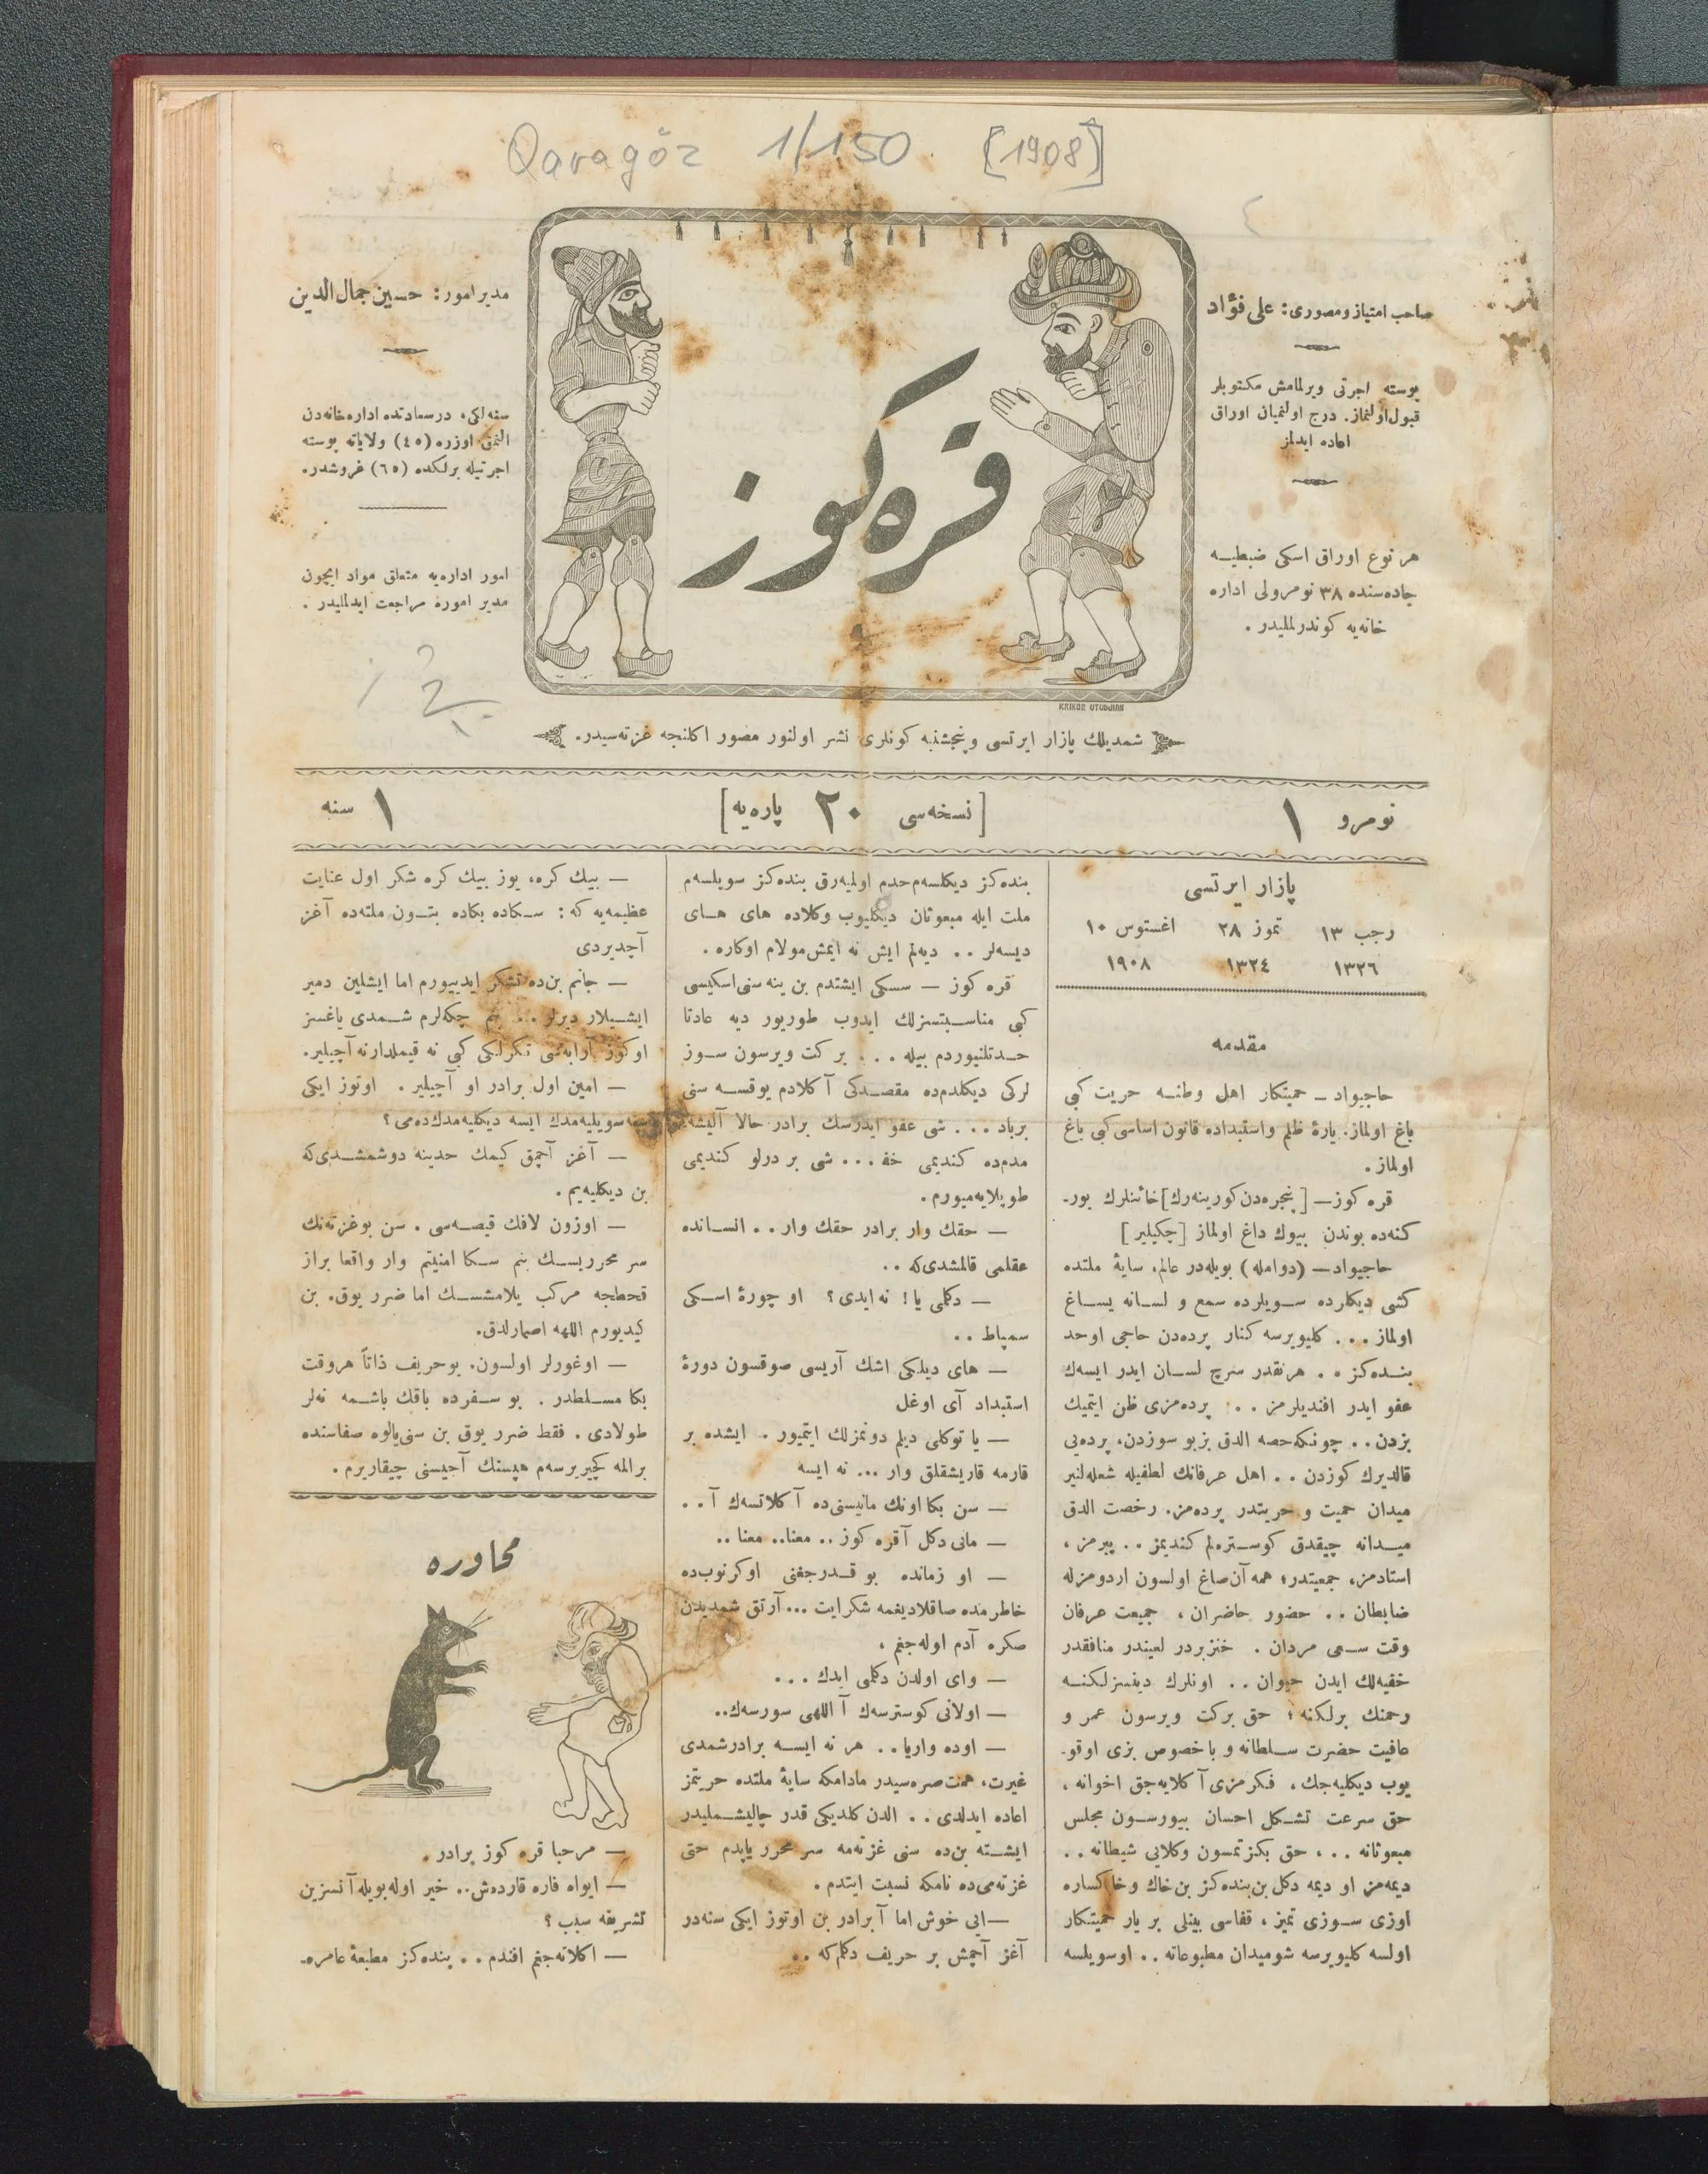 Qaragöz 1/150 [1908]
صاحب امتیاز و مصوری: علی فؤاد
پوسته اجرتی ویرلمامش مکتوبلر
قبول اولنماز. درج اولنمیان اوراق
اعاده ایدلمز
هر نوع اوراق اسکی ضبطیه
جاده‌سنده ٣٨ نومرولی اداره
خانه‌یه کوندرلملیدر .
قره‌كوز
KRIKOR UTUDJIAN
مدیر امور: حسین جمال الدین
سنه‌لکی، درسعادتده اداره‌خانه‌دن
النمق اوزره (٤٥) ولایاته پوسته
اجرتیله برلکده (٦٥) غروشدر.
امور اداره‌یه متعلق مواد ایچون
مدیر اموره مراجعت ایدلملیدر .
شمدیلك پازار ایرتسی و پنجشنبه کونلری نشر اولنور مصور اکلنجه غزته‌سیدر.
نومرو ١
[نسخه‌سی ٢٠ پاره‌یه]
١ سنه
پازار ایرتسی
رجب ١٣ تموز ٢٨ اغستوس ١٠
١٣٢٦ ١٣٢٤ ١٩٠٨
مقدمه
حاجیواد ـ حمیتکار اهل وطنه حریت کبی
باغ اولماز. یارۀ ظلم واستبداده قانون اساسی کبی باغ
اولماز .
قره کوز— [پنجره‌دن کورینه‌رك] خائنلرك بور-
کنه‌ده بوندن بیوك داغ اولماز [چکیلیر]
حاجیواد— (دوامله) بویله‌در عالم، سایۀ ملتده
کشی دیکلرده سویلرده سمع و لسانه یساغ
اولماز ... کلیویرسه کنار پرده‌دن حاجی اوحد
بنده‌کز .. هرنقدر سرچ لسان ایدر ایسه‌ك
عفو ایدر افندیلرمز ... پرده‌مزی ظن ایتمیك
بزدن .. چونکه حصه الدق بز بو سوزدن، پرده‌یی
قالدیرك کوزدن .. اهل عرفانك لطفیله شعله‌لنیر
میدان حمیت و حریتدر پرده‌مز. رخصت الدق
میدانه چیقدق کوستره‌لم کندیمز .. پیرمز ،
استادمز، جمعیتدر؛ همه آن صاغ اولسون اردومزله
ضابطان .. حضور حاضران ، جمیعت عرفان
وقت سعی مردان . خنزیردر لعیندر منافقدر
خفیه‌لك ایدن حیوان .. اونلرك دینسزلکنه
رحمنك برلکنه ؛ حق برکت ویرسون عمر و
عافیت حضرت سلطانه و باخصوص بزی اوقو-
یوب دیکلیه‌جك ، فکرمزی آکلایه‌جق اخوانه ،
حق سرعت تشکل احسان بیورسون مجلس
مبعوثانه ... حق بکزتمسون وکلایی شیطانه ..
دیمه‌مز او دیمه دکل بن بنده‌کز بن خاك و خاکساره
اوزی سوزی تمیز ، قفاسی بینلی بر یار حمیتکار
اولسه کلیویرسه شو میدان مطبوعاته .. اوسویلسه
بنده‌کز دیکلسه‌م حدم اولمیه‌رق بنده‌کز سویلسه‌م
ملت ایله مبعوثان دیکلیوب وکلاده های های
دیسه‌لر .. دیه‌لم ایش نه ایمش مولام اوکاره .
قره کوز — سسکی ایشتدم بن ینه سنی اسکیسی
کبی مناسبتسزلك ایدوب طوریور دیه عادتا
حدتلنیوردم بیله ... برکت ویرسون سوز
لرکی دیکلدم‌ده مقصدکی آکلادم یوقسه سنی
برباد ... شی عفو ایدرسك برادر حالا آلیشه-
مدم‌ده کندیمی خف ... شی بر درلو کندیمی
طوپلایه‌میورم.
— حقك وار برادر حقك وار .. انسانده
عقلمی قالمشدی‌که ..
— دکلمی یا! نه ایدی؟ او چورۀ اسکی
سمپاط ..
— های دیلکی اشك آریسی صوقسون دورۀ
استبداد آی اوغل
— یا توکلی دیلم دونمزلك ایتمیور . ایشده بر
قارمه قاریشقلق وار ... نه ایسه
— سن بکا اونك مانیسنی‌ده آکلاتسه‌ك آ ..
— مانی دکل آ قره کوز .. معنا.. معنا ..
— او زمانده بو قدرجغنی اوکرنوب‌ده
خاطرمده صاقلادیغمه شکر ایت ... آرتق شمدیدن
صکره آدم اوله‌جغم ،
— وای اولدن دکلمی ایدك ...
— اولانی کوسترسه‌ك آ اللهی سورسه‌ك..
— اوده واریا.. هر نه ایسه برادر شمدی
غیرت، همت صره‌سیدر مادامکه سایۀ ملتده حریتمز
اعاده ایدلدی .. الدن کلدیکی قدر چالیشملیدر
ایشته بن‌ده سنی غزته‌مه سر محرر یاپدم حتی
غزته‌می‌ده نامکه نسبت ایتدم .
—ایی خوش اما آ برادر بن اوتوز ایکی سنه‌در
آغز آچمش بر حریف دکلم‌که ..
— بیك کره، یوز بیك کره شکر اول عنایت
عظیمه‌یه که : سکاده بکاده بتون ملته‌ده آغز
آچدیردی
— جانم بن‌ده تشکر ایدییورم اما ایشلین دمیر
ایشیلار دیرلر ... بنم چکه‌لرم شمدی یاغسز
اوکوز آرابه‌سی تکرلکی کبی نه قیملدار نه آچیلیر.
— امین اول برادر او آچیلیر . اوتوز ایکی
سنه سویلیه‌مدك ایسه دیکلیه‌مدك‌ده‌می ؟
— آغز آچمق کیمك حدینه دوشمشدی‌که
بن دیکلیه‌یم .
— اوزون لافك قیصه‌سی . سن بو غزته‌نك
سر محرریسك بنم سکا امنیتم وار واقعا براز
قحطجه مرکب یلامشسك اما ضرر یوق. بن
کیدیورم اللهه اصمارلدق.
— اوغورلر اولسون، بو حریف ذاتاً هر وقت
بکا مسلطدر . بو سفرده باقك باشمه نه‌لر
طولادی . فقط ضرر یوق بن سنی یالوه صفاسنده
بر المه کچیریرسه‌م هپسنك آجیسنی چیقاریرم .
محاوره
— مرحبا قره کوز برادر .
— ایواه فاره قارده‌ش.. خیر اوله بویله آنسزین
تشریفه سبب ؟
— اکلاته‌جغم افندم .. بنده‌کز مطبعۀ عامره-